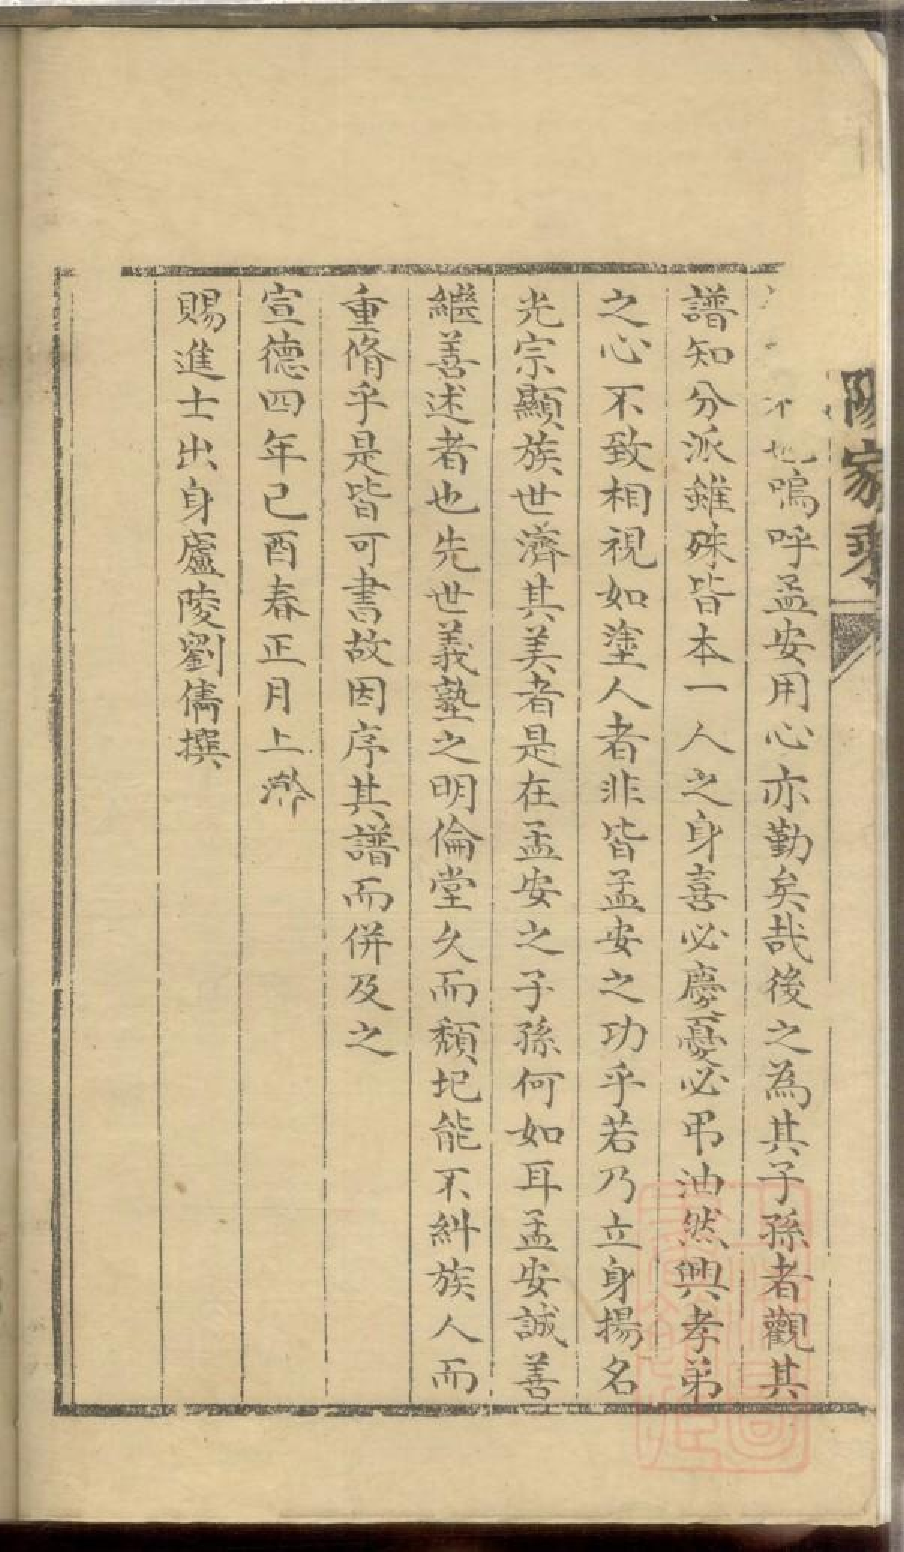 家乘
也嗚呼孟安用心亦勤矣哉後之為其子孫者觀其
譜知分派雖殊皆本一人之身喜必慶憂必弔油然興孝弟
之心不致相視如塗人者非皆孟安之功乎若乃立身揚名
光宗顯族世濟其美者是在孟安之子孫何如耳孟安誠善
繼善述者也先世義塾之明倫堂久而頹圮能不糾族人而
重脩乎是皆可書故因序其譜而併及之
宣德四年己酉春正月上澣
賜進士出身廬陵劉儁撰